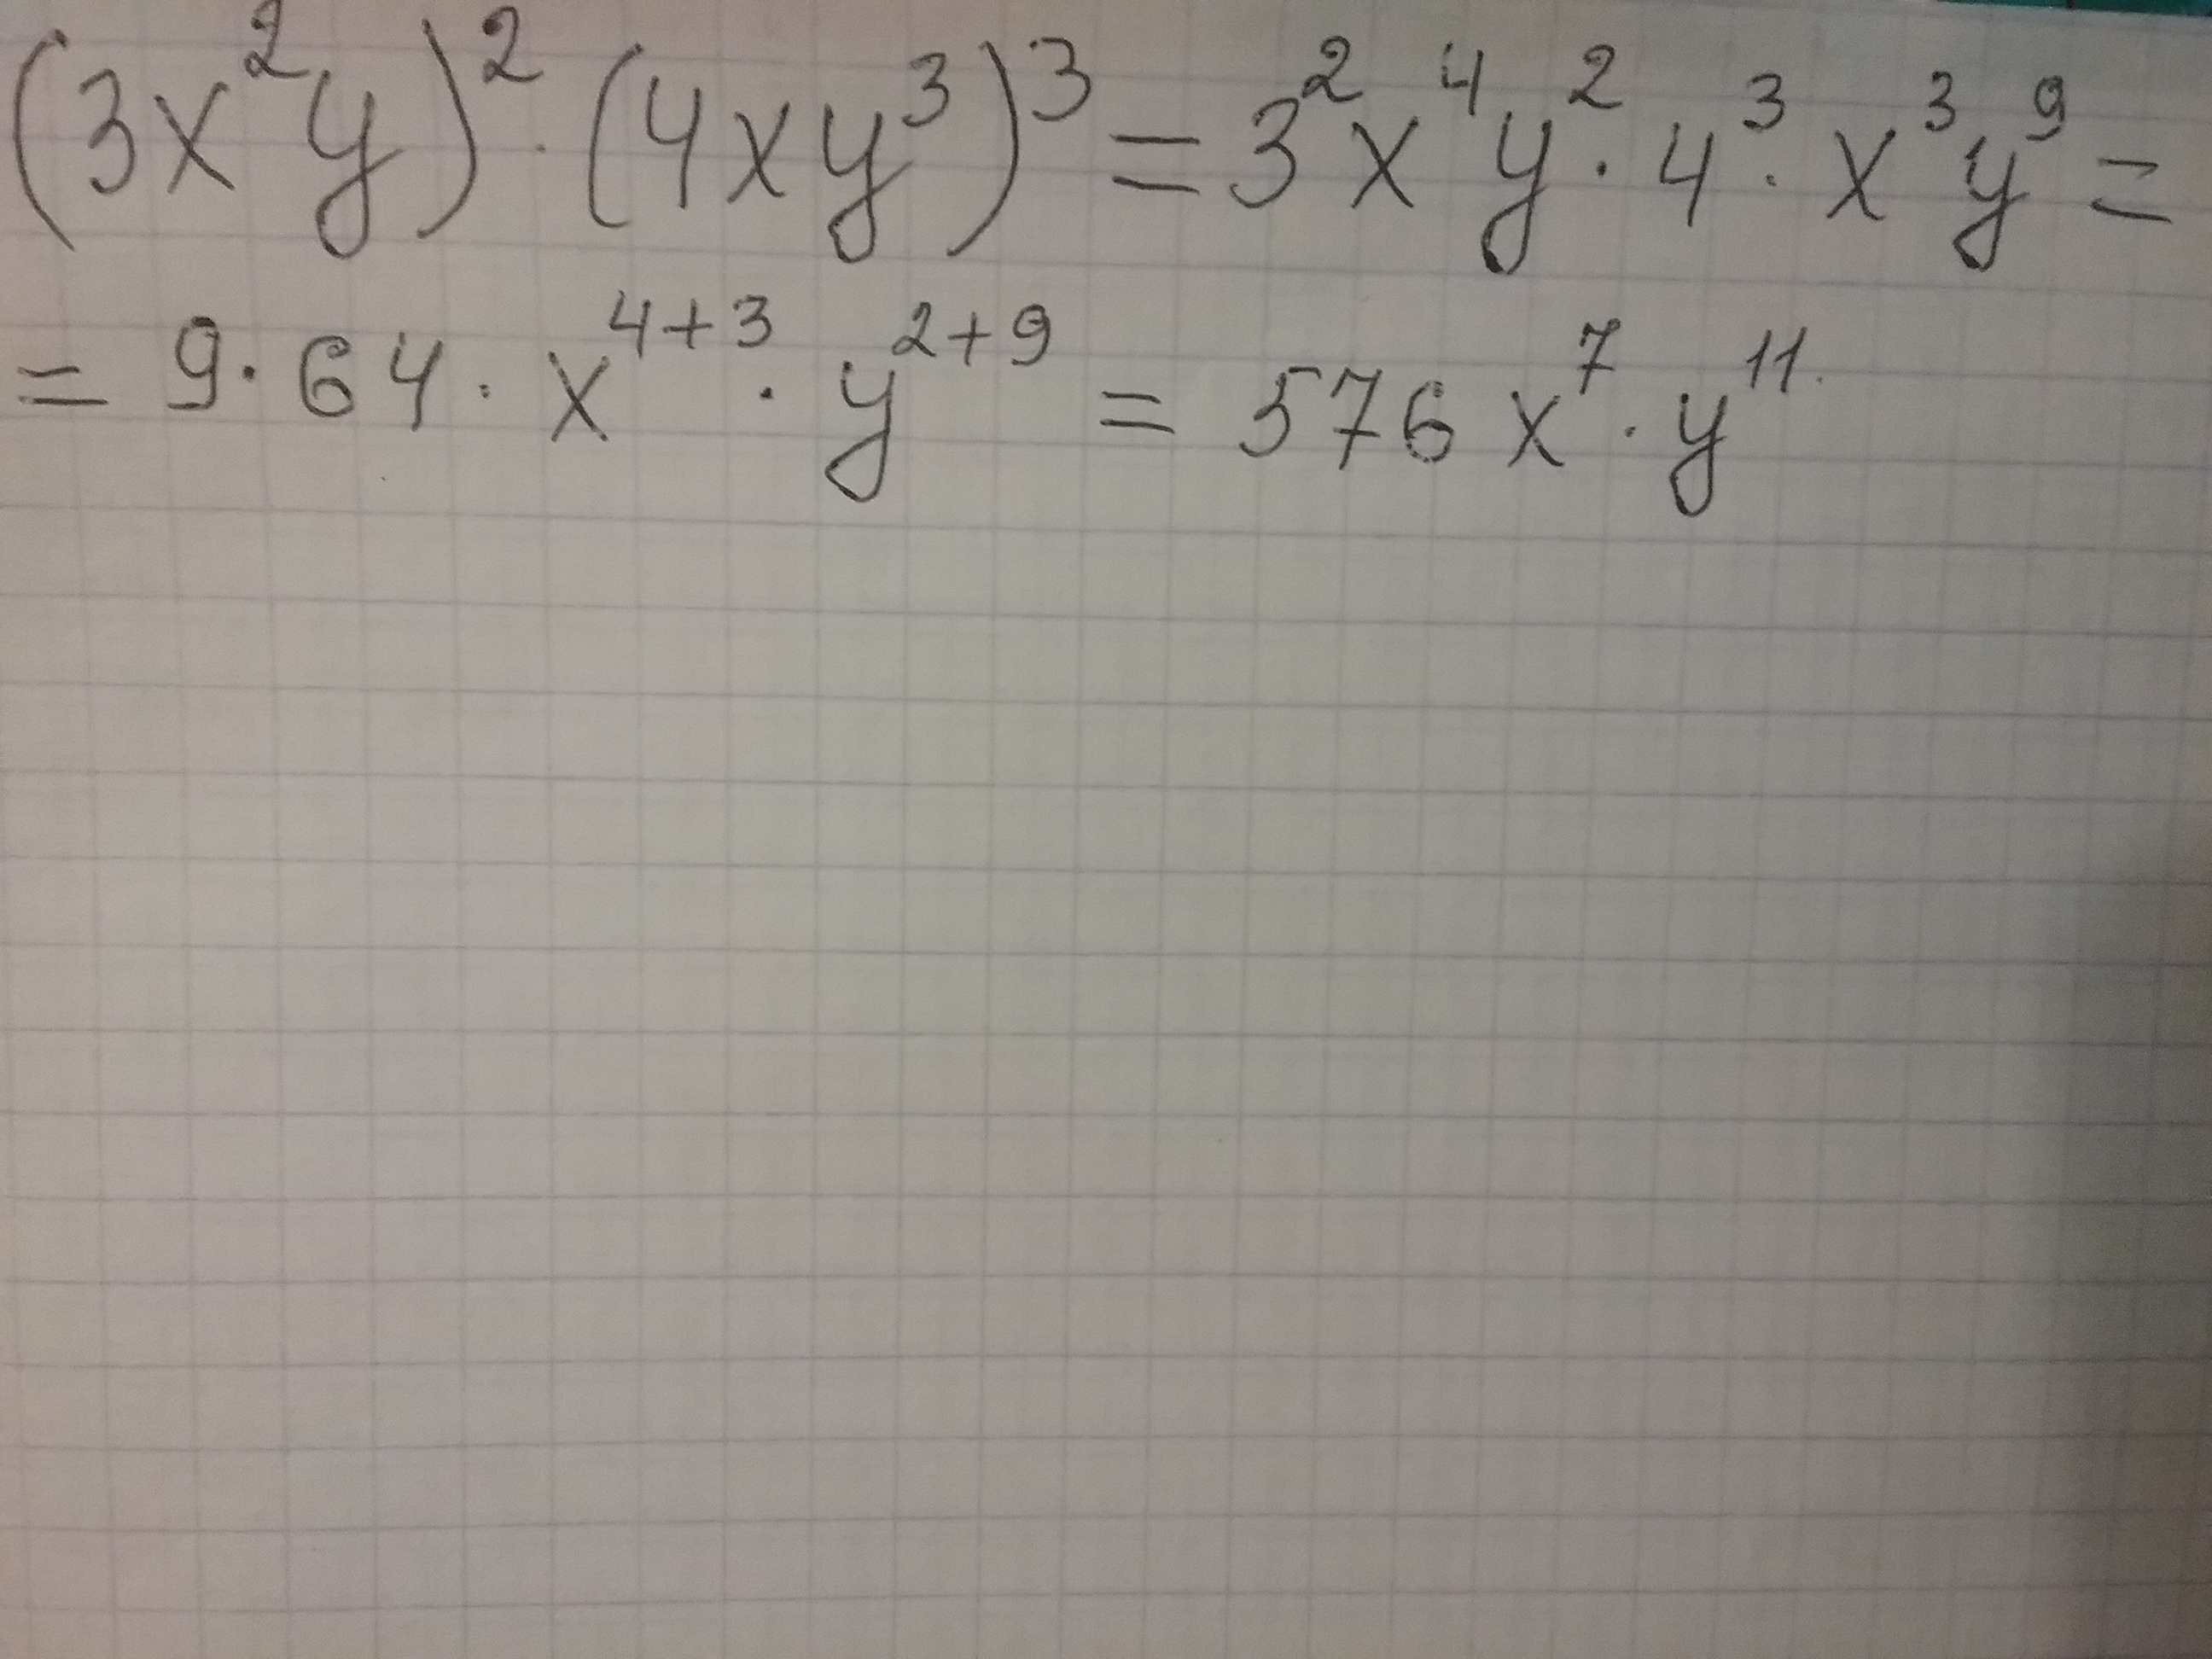 (3x²y)² · (4xy³)³ = 3²x⁴y² · 4³ · x³y⁹ =
= 9 · 64 · x⁴⁺³ · y²⁺⁹ = 576x⁷ · y¹¹.